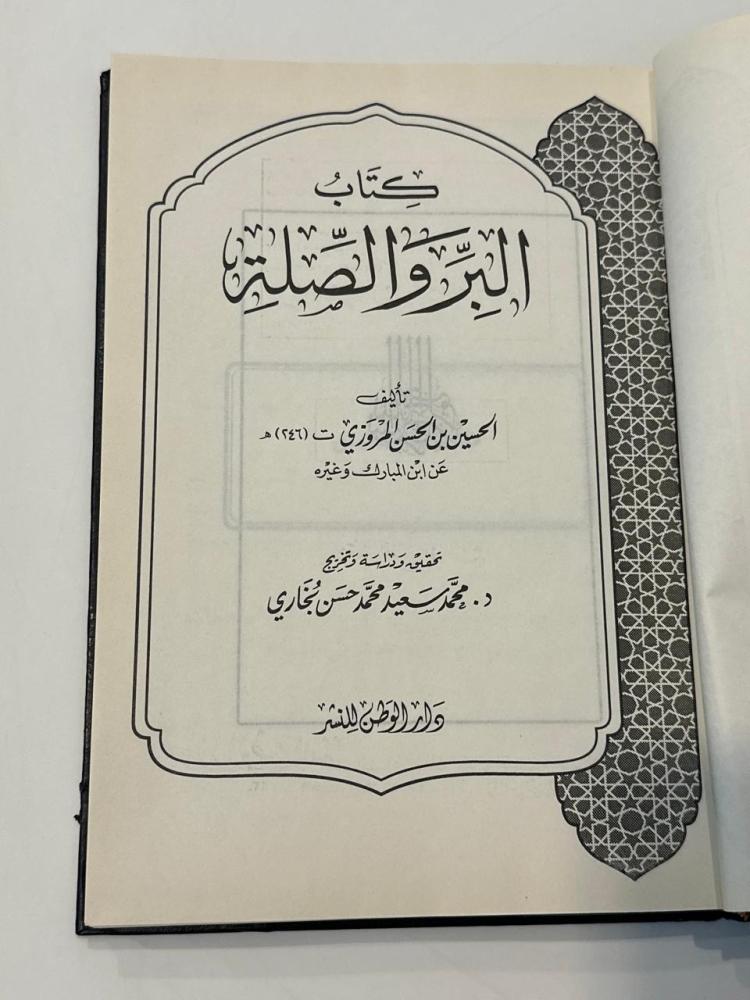 كِتَابُ
البِرِّ وَالصِّلَةِ
تأليف
الحسين بن الحسن المروزي ت (٢٤٦) هـ
عَن ابن المبارك وَغيره
تحقيق وَدراسة وَتخريج
د. محمَّد سَعيد محمَّد حسَن بُخَاري
دَار الوَطن للنشر